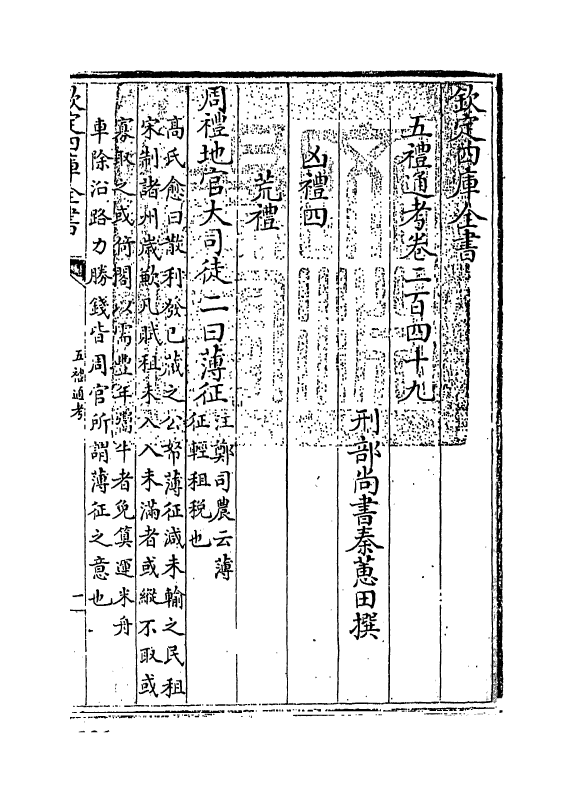 欽定四庫全書
五禮通考卷二百四十九
刑部尚書秦蕙田撰
凶禮四
荒禮
周禮地官大司徒二曰薄征注鄭司農云薄
征輕租税也
高氏愈曰散利發已藏之公帑薄征減未輸之民租
宋制諸州歲歉凡賦租未入入未滿者或縱不取或
寡取之或倚閣以需豐年鬻牛者免算運米舟
車除沿路力勝錢皆周官所謂薄征之意也
欽定四庫全書
五禮通考
一